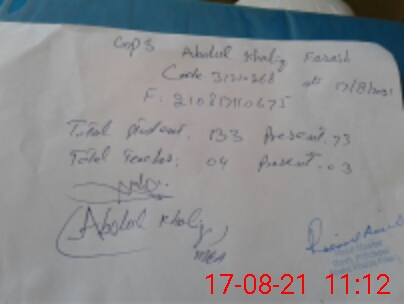 GGPS Abdul Khaliq Farash
Code. 31210268 dt 17/8/2021
F: 210817110675
Total Student. 133 Present. 73
Total Teacher: 04 Present. 03
Abdul Khaliq
MEA
17-08-21 11:12